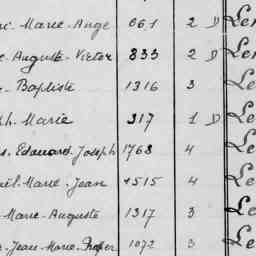 Marie-Ange 661 2 D Le
Auguste-Victor 833 2 D Le
Baptiste 1316 3 Le
Marie 317 1 D Le
Edouard Joseph 1768 4 Le
Marie-Jean 1515 4 Le
Marie-Auguste 1317 3 Le
Jean-Marie-Prosper 1072 3 Le